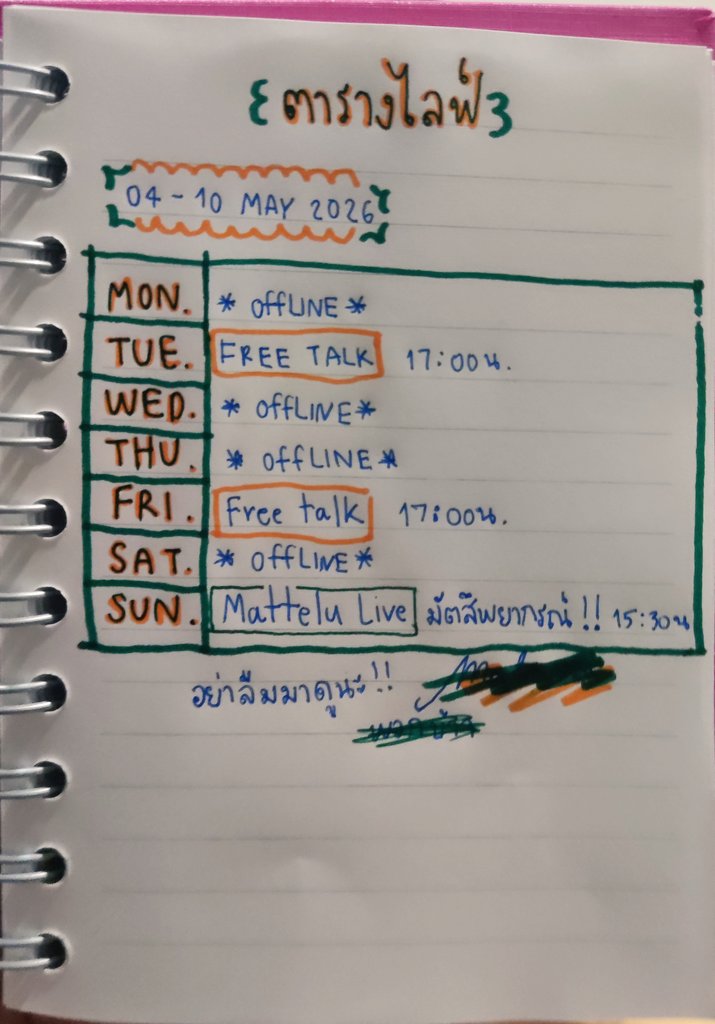 {ตารางไลฟ์}
04 - 10 MAY 2026
MON. * OffLINE *
TUE. FREE TALK 17:00น.
WED. * OffLINE *
THU. * OffLINE *
FRI. Free talk 17:00น.
SAT. * OffLINE *
SUN. Mattelu Live มัตสึพยากรณ์!! 15:30น
อย่าลืมมาดูนะ!!